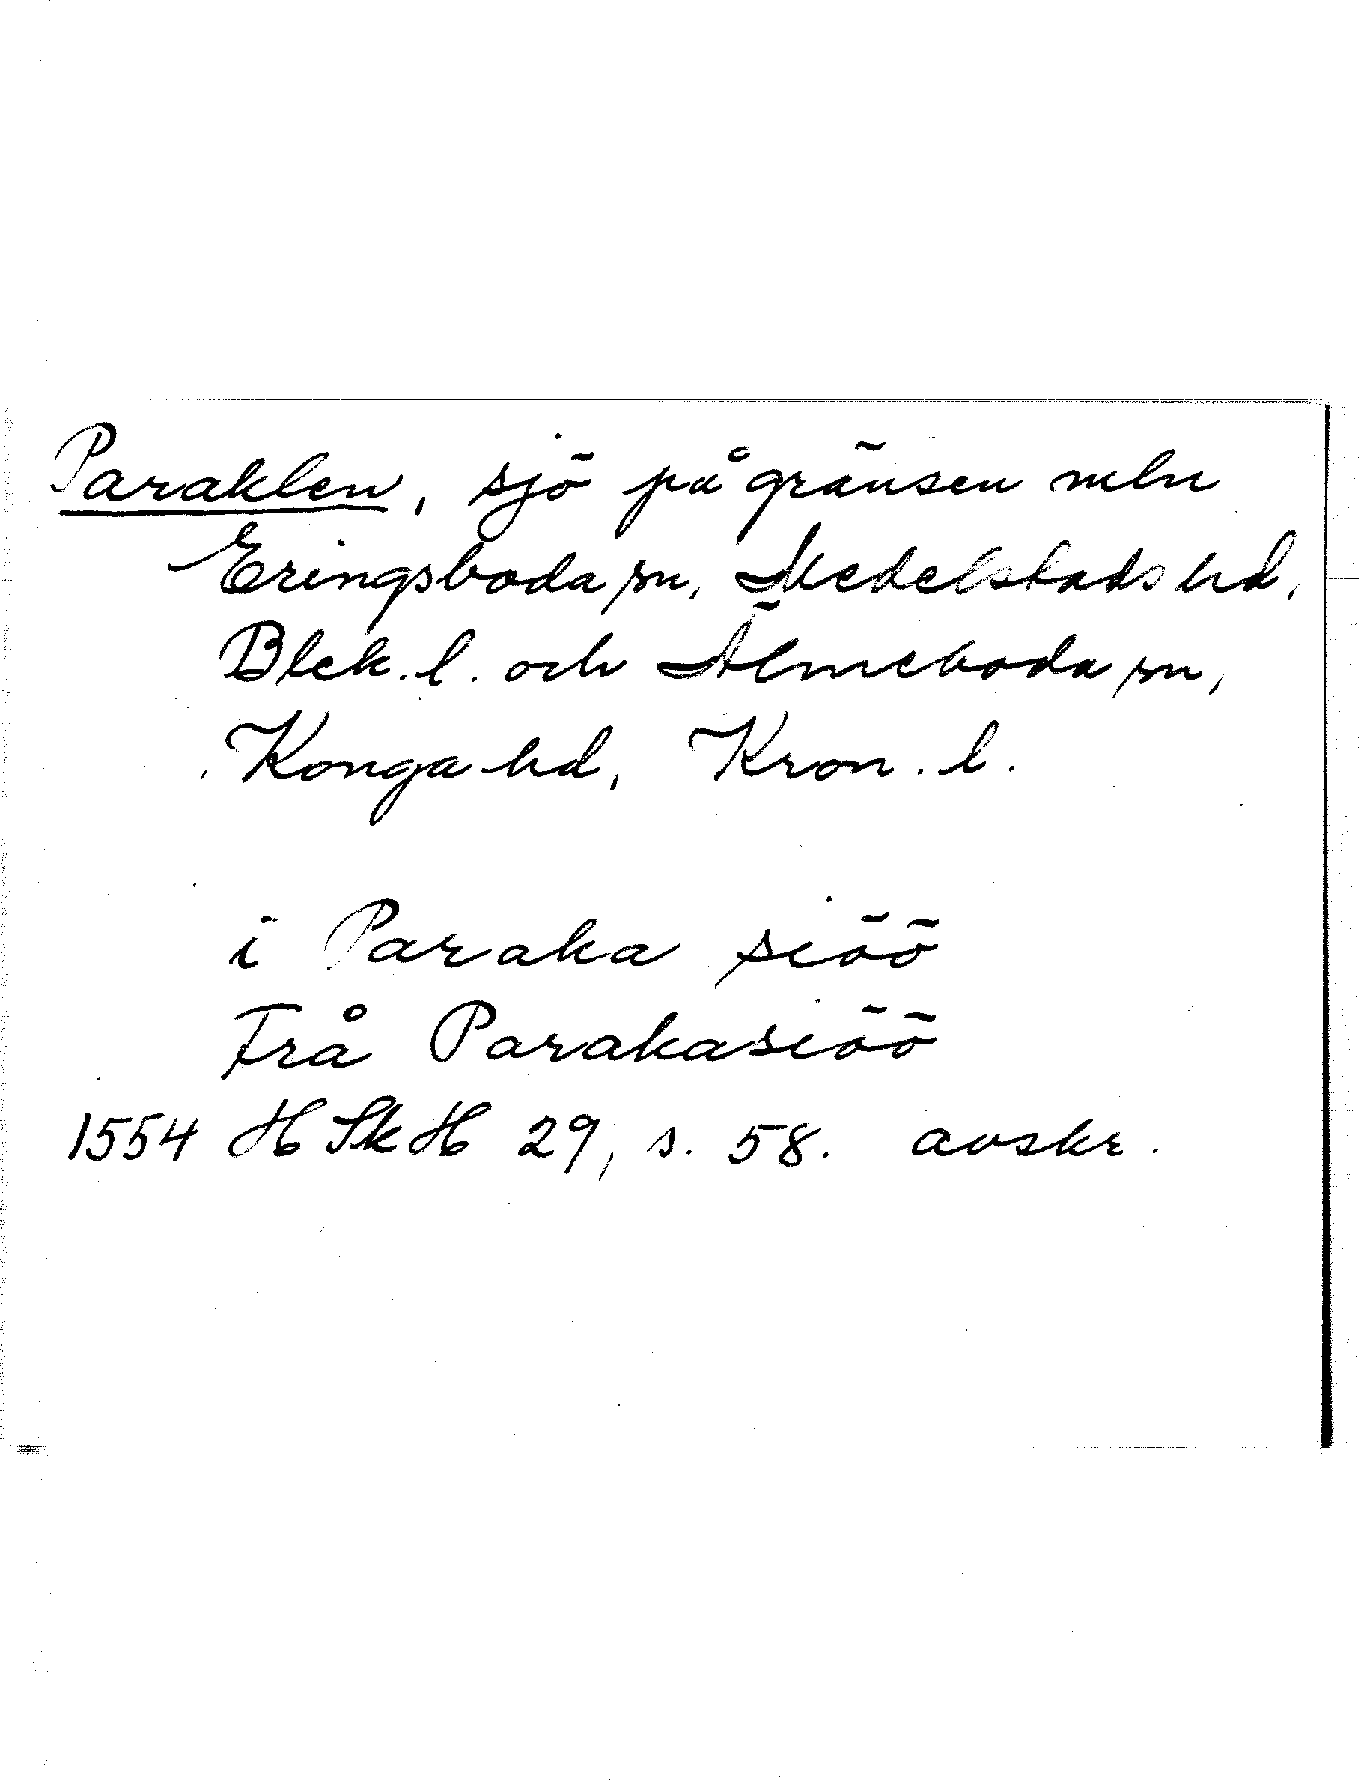 Paraklen, sjö på gränsen mln
Eringsboda sn, Medelstads hd,
Blek. l. och Älmeboda sn,
Konga hd, Kron. l.
i Paraka siöö
Frå Parakasiöö
1554 H Sk H 29, s. 58. avskr.